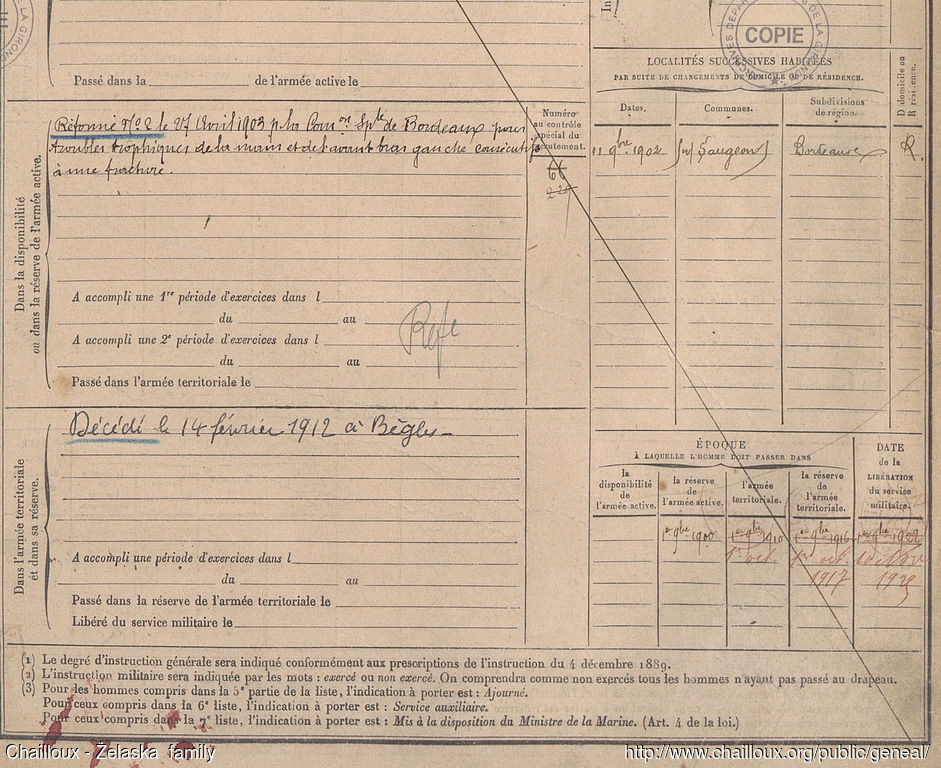 COPIE
Passé dans la de l'armée active le
Réformé N° 2 le 27 Avril 1903 p. la Comon Sple de Bordeaux pour
troubles trophiques de la main et de l'avant bras gauche consécutifs
à une fracture.
Dans la disponibilité
ou dans la réserve de l'armée active.
A accompli une 1re période d'exercices dans l
du au
A accompli une 2e période d'exercices dans l
du au
Passé dans l'armée territoriale le
Numéro
au contrôle
spécial du
recrutement.
66
LOCALITÉS SUCCESSIVES HABITÉES
PAR SUITE DE CHANGEMENTS DE DOMICILE OU DE RÉSIDENCE.
Dates.
Communes.
Subdivisions
de région.
D domicile ou
R résidence.
11 9bre 1902
Saugeon
Bordeaux
R.
Décédé le 14 février 1912 à Bègles
Dans l'armée territoriale
et dans sa réserve.
A accompli une période d'exercices dans l
du au
Passé dans la réserve de l'armée territoriale le
Libéré du service militaire le
ÉPOQUE
À LAQUELLE L'HOMME DOIT PASSER DANS
la
disponibilité
de
l'armée active.
la réserve
de
l'armée active.
l'armée
territoriale.
la réserve
de
l'armée
territoriale.
DATE
de la
LIBÉRATION
du service
militaire.
1er 9bre 1900
1er 9bre 1910
1er 9bre 1916
1er 9bre 1922
1er oct.
1er oct.
1917
10 Nov
(1) Le degré d'instruction générale sera indiqué conformément aux prescriptions de l'instruction du 4 décembre 1889.
(2) L'instruction militaire sera indiquée par les mots : exercé ou non exercé. On comprendra comme non exercés tous les hommes n'ayant pas passé au drapeau.
(3) Pour les hommes compris dans la 5e partie de la liste, l'indication à porter est : Ajourné.
Pour ceux compris dans la 6e liste, l'indication à porter est : Service auxiliaire.
Pour ceux compris dans la 7e liste, l'indication à porter est : Mis à la disposition du Ministre de la Marine. (Art. 4 de la loi.)
Chailloux - Želaska family
http://www.chailloux.org/public/geneal/